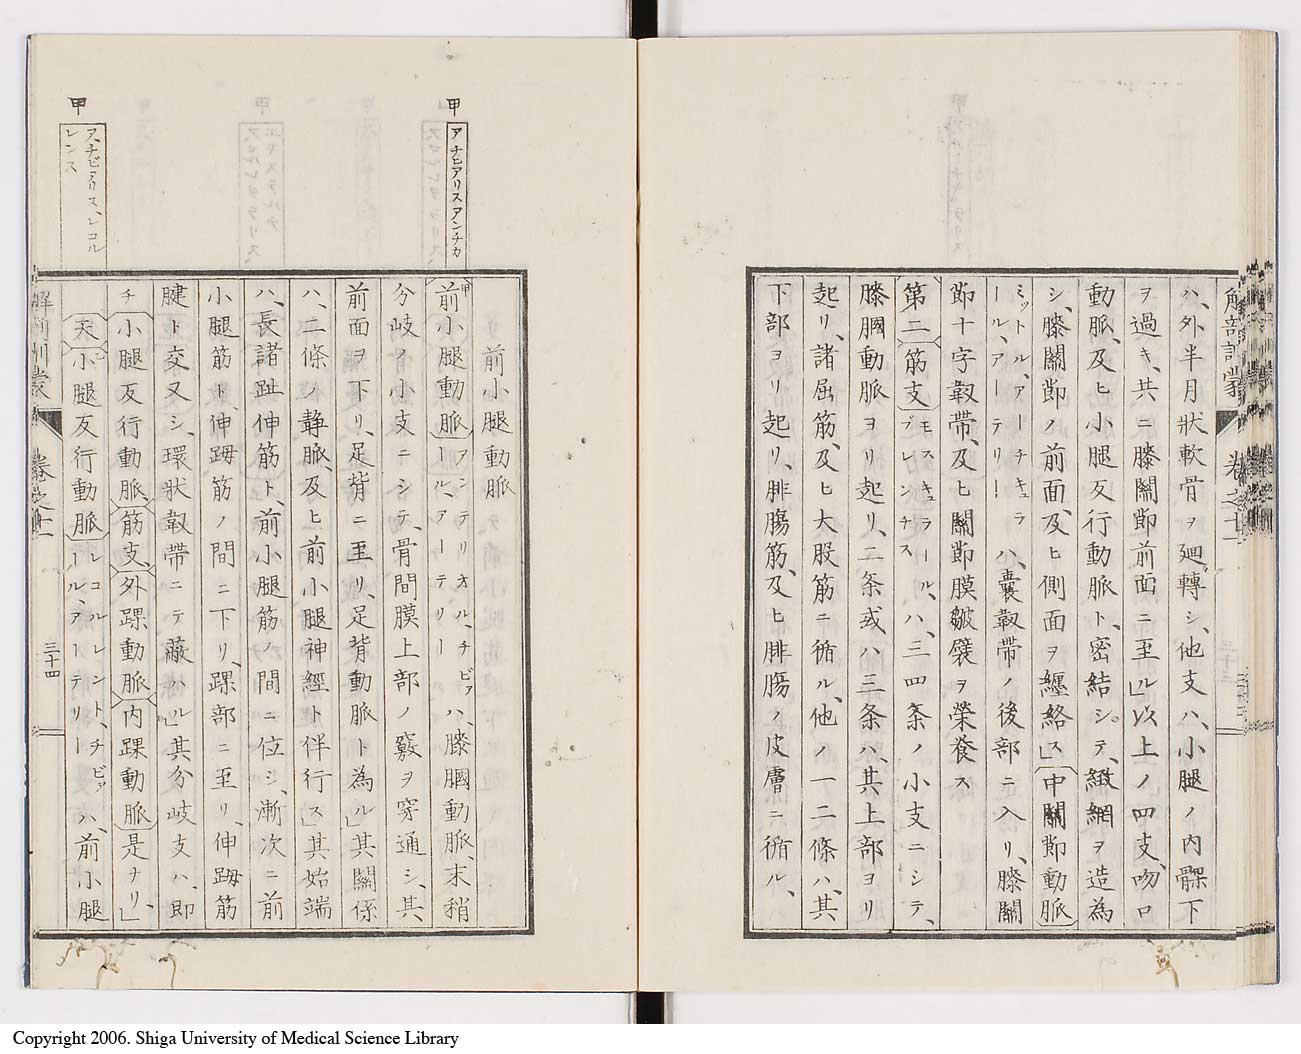 解剖訓蒙 卷之十一
ハ、外半月狀軟骨ヲ廻轉シ、他支ハ、小腿ノ内髁下
ヲ過キ、共ニ膝關節前面ニ至ル」以上ノ四支、吻口
動脈、及ヒ小腿反行動脈ト、密結シテ、緻網ヲ造為
シ、膝關節ノ前面、及ヒ側面ヲ纏絡ス」中關節動脈
ミットル、アーチキュラール、アーテリー ハ、囊靱帶ノ後部ニ入リ、膝關
節十字靱帶、及ヒ關節膜皺襞ヲ榮養ス
第二筋支 モスキュラール、ブレンチス ハ、三四条ノ小支ニシテ、
膝膕動脈ヨリ起リ、二条或ハ三条ハ、其上部ヨリ
起リ、諸屈筋、及ヒ大股筋ニ循ル、他ノ一二條ハ、其
下部ヨリ起リ、腓膓筋、及ヒ腓膓ノ皮膚ニ循ル、
甲
アチビアリスアンチカ
前小腿動脈
甲
前小腿動脈 アンテリオル、チビアール、アーテリー ハ、膝膕動脈、末稍
分岐ノ小支ニシテ、骨間膜上部ノ竅ヲ穿通シ、其
前面ヲ下リ、足背ニ至リ、足背動脈ト為ル」其關係
ハ、二條ノ静脈、及ヒ前小腿神經ト伴行ス」其始端
ハ、長諸趾伸筋ト、前小腿筋ノ間ニ位シ、漸次ニ前
小腿筋ト、伸踇筋ノ間ニ下リ、踝部ニ至リ、伸踇筋
腱ト交叉シ、環状靱帶ニテ蔽ハル」其分岐支ハ、即
チ小腿反行動脈、筋支、外踝動脈、内踝動脈是ナリ、」
甲
ア、チビアリス、レコルレンス
天 小腿反行動脈 レコルレント、チビアールアーテリー ハ、前小腿
解剖訓蒙 卷之十一 三十四
Copyright 2006. Shiga University of Medical Science Library